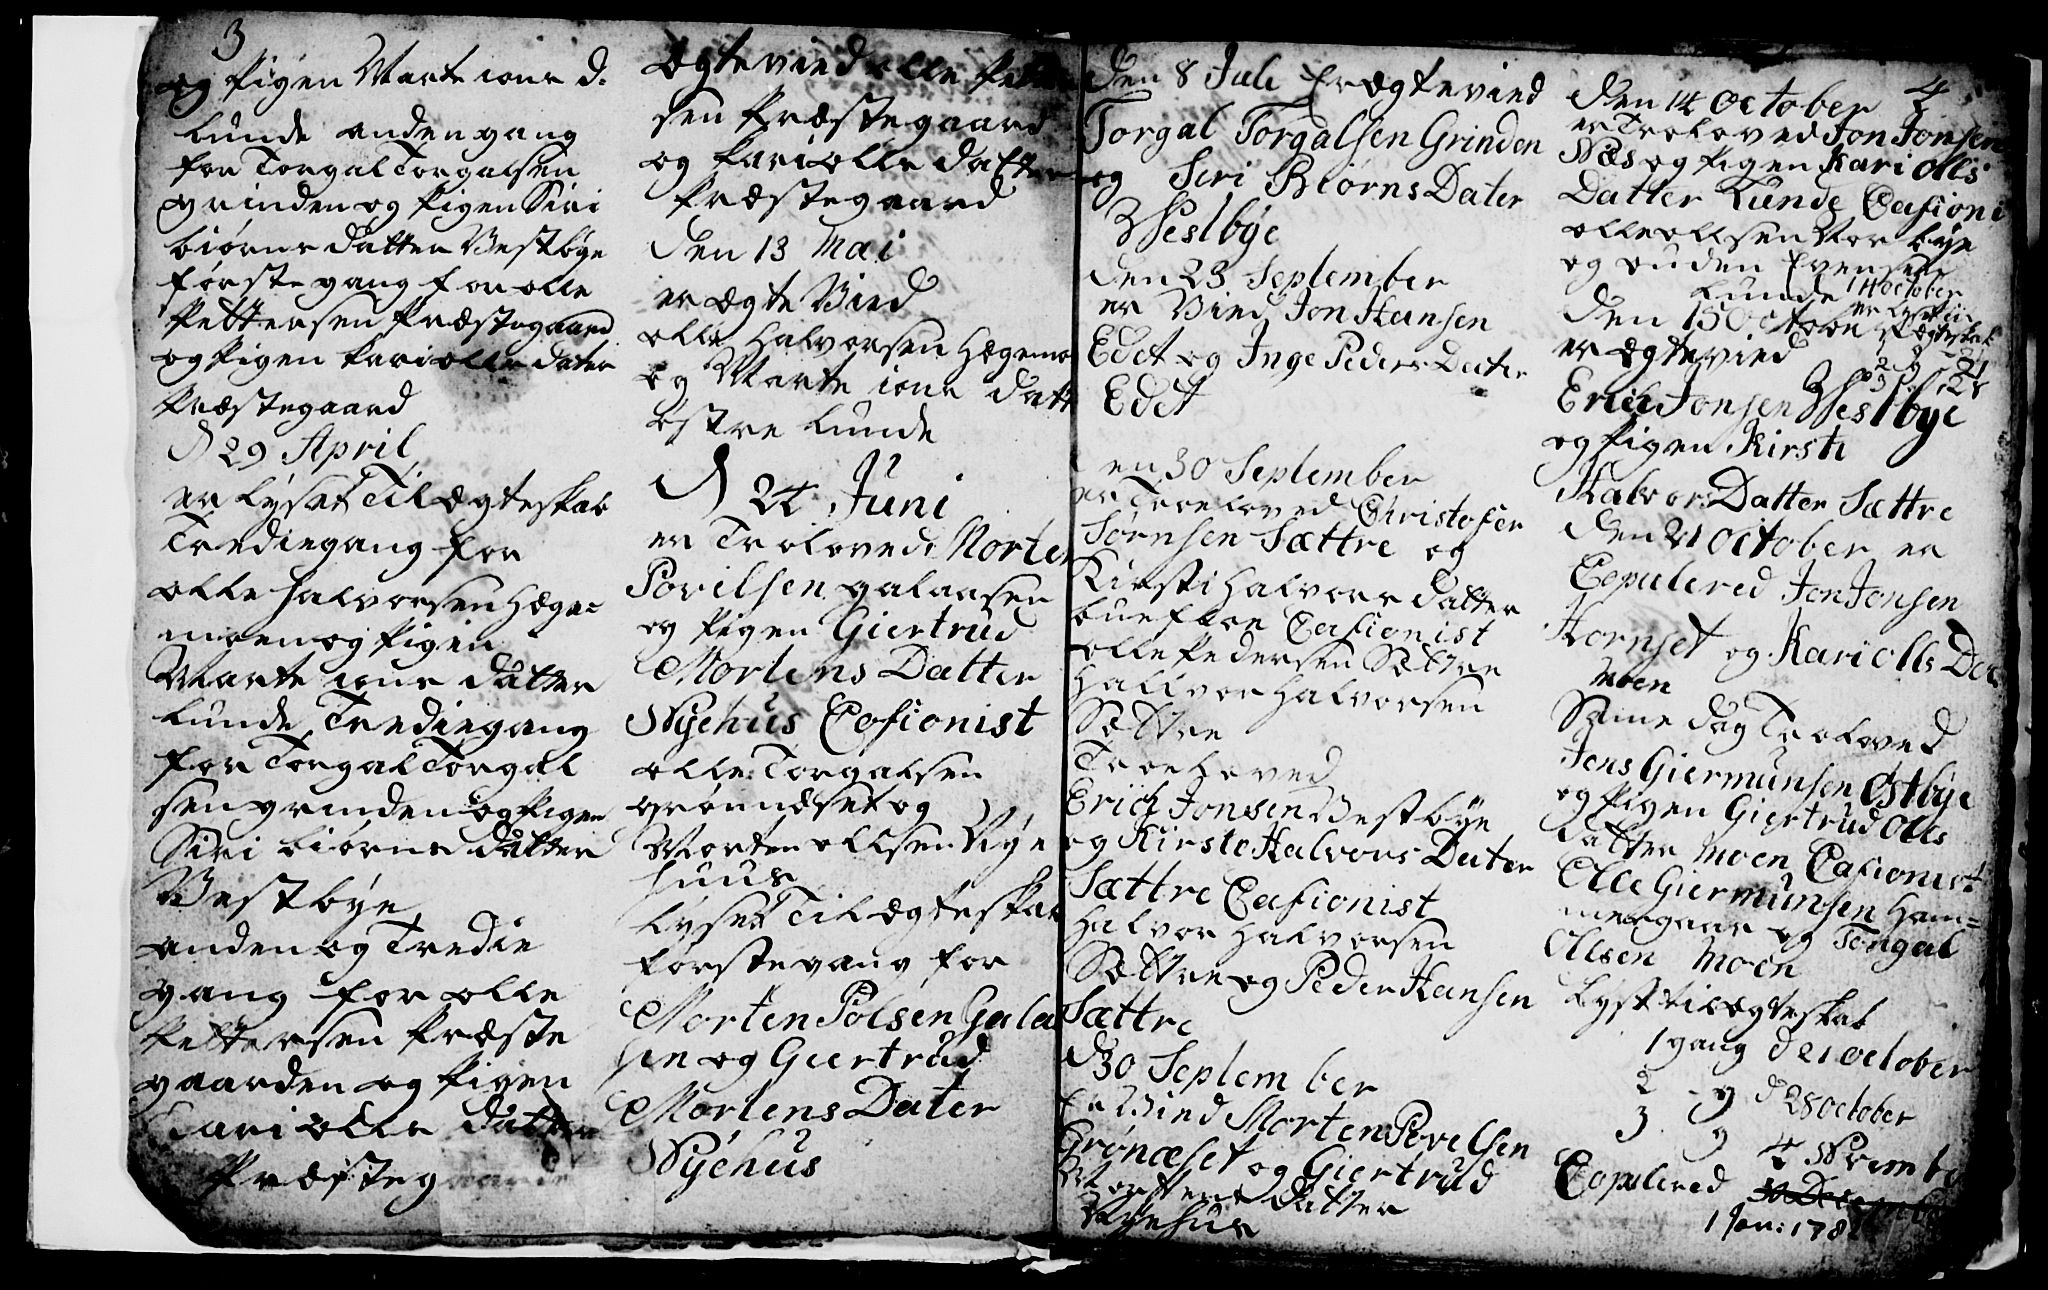 3
og Pigen Marte ions d.
Lunde anden gang
for Torgal Torgalsen
grinden og Pigen Siri
biørns datter Vestbÿe
første gang for olle
Pettersen Præstegaard
og Pigen kari olls dater
Præstegaard
D 29 April
er lÿset Til Ægteskab
Trediegang for
olle Halvorsen Hæge=
moen og Pigen
Marte ions datter
Lunde, Trediegang
for Torgal Torgal
sen grinden og Pigen
Siri biørns datter
Vestbÿe
anden og Tredie
gang for olle
Pettersen Præste
gaarden og Pigen
kari olls datter
Præsteg
Ægteviend olle Petter
sen Præstegaard
og kari olls datter
Præstegaard
Den 13 Mai
er ægte Vied
olle Halvorsen Hægemo
og Marte ions datt
østre Lunde
D 24 Juni
er Troloved Morten
Povilsen galaasen
og Pigen Giertrud
Mortens Datter
Nÿehus Cofionist
olle Torgalsen
grønnæset og
Morten ollsen Nÿe
huus
lÿset Til Ægteskab
første gang for
Morten Polsen Gala
sen og Giertrud
Mortens Dater
Nÿehus
Den 8 Juli Er Ægtevied
Torgal Torgalsen Grinden
og Siri Biørns Dater
Vestbÿe
Den 23 September
er Vied Jon Hansen
Edet og Inge Peders Dater
Edet
Den 30 September
er Troeloved Christofer
Sørnsen Sættre og
Kirsti Halvors datter
Cafionist
olle Pedersen Sættre
Hallvor Halvorsen
Sættre
Troeloved
Erich Jonsen Vestbÿe
og Kirste Halvors Dater
Sættre Cafionist
Halvor Halvorsen
Sættre og Peder Hansen
Sættre
D 30 September
Er Vied Morten Povelsen
Grønæset og Giertrud
Mortens datter
Nÿehus
4
Den 14 October
er Troloved Jon Jonsen
Næs og Pigen Kari Olls
Datter Lunde Cafioni
olle ollsen Nor bÿe
og Evensen
Lunde 14 October
Den 15 October
er ægtevied
Erich Jonsen Vestbÿe
og Pigen Kirsti
Halvors Datter Sættre
Den 21 October er
Copulered Jon Jonsen
Hornset og Kari Olls Dat
Moen
Same dag Troloved
Jens Giermunsen Østbÿe
og Pigen Giertrud Olls
datter Moen Cafionist
Olle Giermunsen Ham=
mergaar og Torgal
Ollsen Moen
Lÿst til Ægteskab
1 gang D 21 October
2 - g D 28 October
3 g 4 November
Copulered 30 December
1 Jan: 178